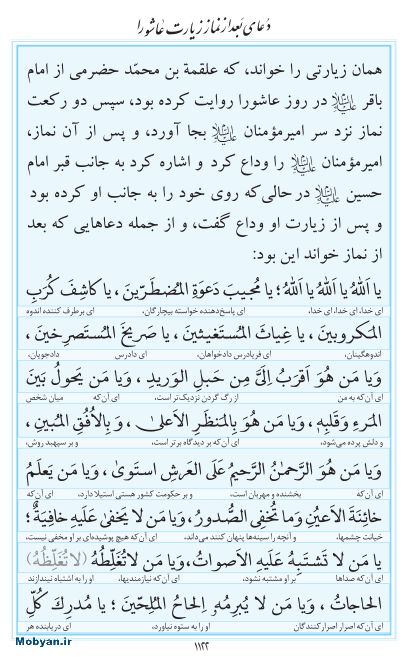 دعای بعد از نماز زیارت عاشورا
همان زیارتی را خواند، که علقمة بن محمّد حضرمی از امام
باقر علیه‌السلام در روز عاشورا روایت کرده بود، سپس دو رکعت
نماز نزد سر امیرمؤمنان علیه‌السلام بجا آورد، و پس از آن نماز،
امیرمؤمنان علیه‌السلام را وداع کرد و اشاره کرد به جانب قبر امام
حسین علیه‌السلام در حالی که روی خود را به جانب او کرده بود
و پس از زیارت او وداع گفت، و از جمله دعاهایی که بعد
از نماز خواند این بود:
یا اَللهُ یا اَللهُ یا اَللهُ؛ یا مُجیبَ دَعوَةِ المُضطَرّینَ، یا کاشِفَ کُرَبِ
ای خدا، ای خدا، ای خدا، ای پاسخ‌دهنده خواسته بیچارگان، ای برطرف کننده اندوه
المَکروبینَ، یا غِیاثَ المُستَغیثینَ، یا صَریخَ المُستَصرِخینَ،
اندوهگینان، ای فریادرس دادخواهان، ای دادرس دادجویان،
وَیا مَن هُوَ اَقرَبُ اِلَیَّ مِن حَبلِ الوَریدِ، وَیا مَن یَحولُ بَینَ
ای آن‌که به من از رگ گردن نزدیک‌تر است، ای آن‌که میان شخص
المَرءِ وَقَلبِهِ، وَیا مَن هُوَ بِالمَنظَرِ الاَعلیٰ، وَ بِالاُفُقِ المُبینِ،
و دلش پرده می‌شود، ای آن‌که بر دیدگاه برتر است، و بر سپهبد روش،
وَیا مَن هُوَ الرَّحمٰنُ الرَّحیمُ عَلَی العَرشِ استَویٰ، وَیا مَن یَعلَمُ
ای آن‌که بخشنده و مهربان است، و بر حکومت کشور هستی استیلا دارد، ای آن‌که
خائِنَةَ الاَعیُنِ وَما تُخفِی الصُّدورُ، وَیا مَن لا یَخفیٰ عَلَیهِ خافِیَةٌ؛
خیانت چشمها، و آنچه را سینه‌ها پنهان کنند می‌داند، ای آن‌که هیچ پوشیده‌ای بر او مخفی نیست،
یا مَن لا تَشتَبِهُ عَلَیهِ الاَصواتُ، وَیا مَن لا تُغَلِّطُهُ (لا تُغَلِّظُهُ)
ای آن‌که صداها بر او مشتبه نشود، ای آن‌که نیازمندیها، او را به اشتباه نیندازند
الحاجاتُ، وَیا مَن لا یُبرِمُهُ اِلحاحُ المُلِحّینَ؛ یا مُدرِکَ کُلِّ
ای آن‌که اصرار اصرارکنندگان او را به ستوه نیاورد، ای دریابنده هر
Mobyan.ir
۱۱۲۲